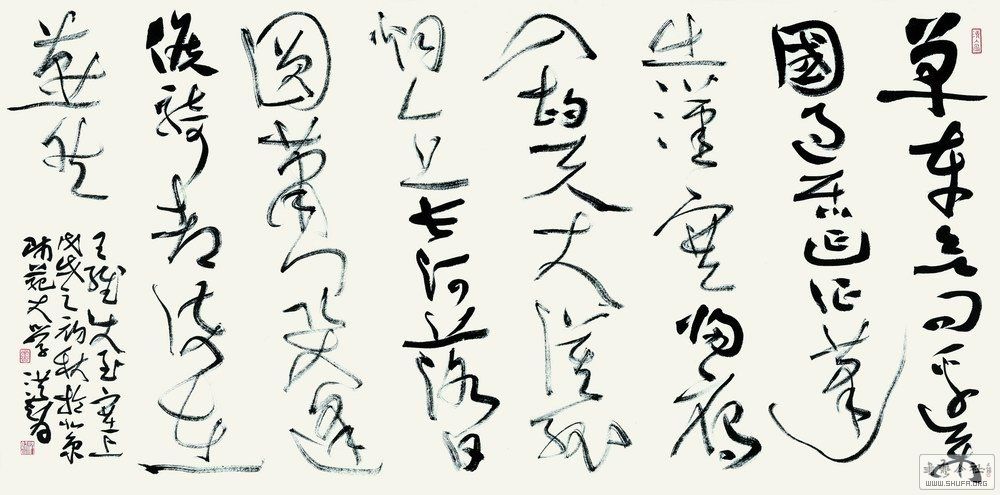 單車欲问邊屬
國過居延征蓬
出漢塞歸雁
入胡天大漠孤
烟直長河落日
圓蕭關逢
候騎都護在
燕然
王維使至塞上
戊戌之初秋於北京
師範大學
WWW.SHUFA.ORG